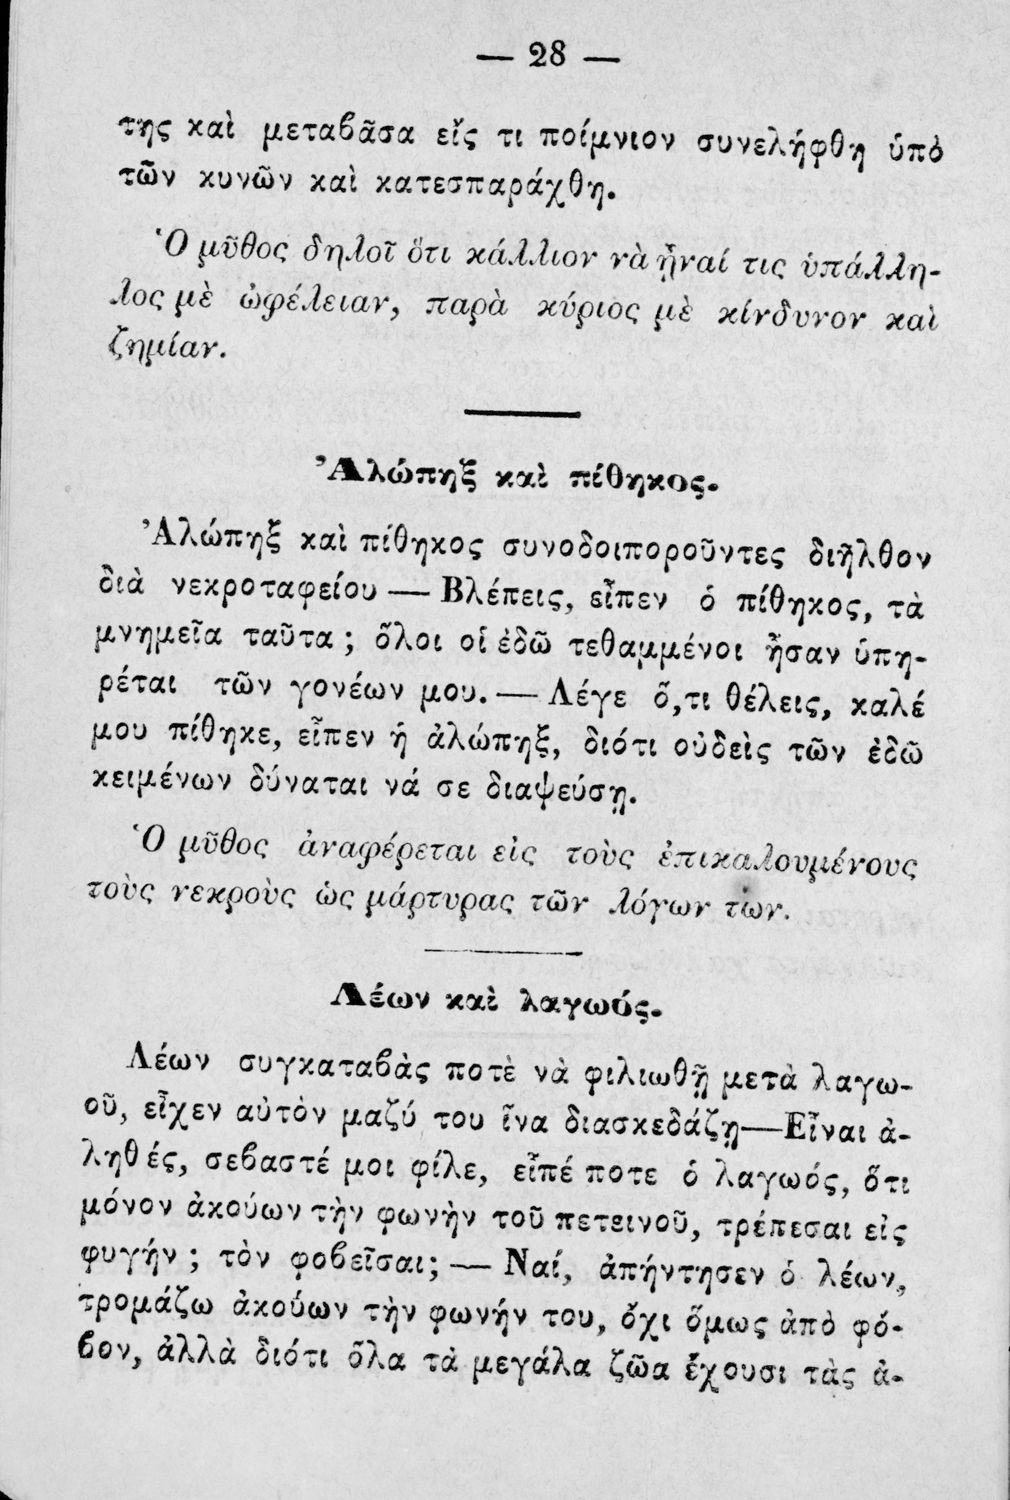 — 28 —
της καὶ μεταβᾶσα εἴς τι ποίμνιον συνελήφθη ὑπὸ
τῶν κυνῶν καὶ κατεσπαράχθη.
Ὁ μῦθος δηλοῖ ὅτι κάλλιον νὰ ᾖναί τις ὑπάλλη-
λος μὲ ὠφέλειαν, παρὰ κύριος μὲ κίνδυνον καὶ
ζημίαν.
Ἀλώπηξ καὶ πίθηκος.
Ἀλώπηξ καὶ πίθηκος συνοδοιποροῦντες διῆλθον
διὰ νεκροταφείου — Βλέπεις, εἶπεν ὁ πίθηκος, τὰ
μνημεῖα ταῦτα ; ὅλοι οἱ ἐδῶ τεθαμμένοι ἦσαν ὑπη-
ρέται τῶν γονέων μου. — Λέγε ὅ,τι θέλεις, καλέ
μου πίθηκε, εἶπεν ἡ ἀλώπηξ, διότι οὐδεὶς τῶν ἐδῶ
κειμένων δύναται νά σε διαψεύσῃ.
Ὁ μῦθος ἀναφέρεται εἰς τοὺς ἐπικαλουμένους
τοὺς νεκροὺς ὡς μάρτυρας τῶν λόγων των.
Λέων καὶ λαγωός.
Λέων συγκαταβὰς ποτὲ νὰ φιλιωθῇ μετὰ λαγω-
οῦ, εἶχεν αὐτὸν μαζύ του ἵνα διασκεδάζῃ—Εἶναι ἀ-
ληθές, σεβαστέ μοι φίλε, εἶπέ ποτε ὁ λαγωός, ὅτι
μόνον ἀκούων τὴν φωνὴν τοῦ πετεινοῦ, τρέπεσαι εἰς
φυγήν ; τὸν φοβεῖσαι; — Ναί, ἀπήντησεν ὁ λέων,
τρομάζω ἀκούων τὴν φωνήν του, ὄχι ὅμως ἀπὸ φό-
βον, ἀλλὰ διότι ὅλα τὰ μεγάλα ζῶα ἔχουσι τὰς ἀ-